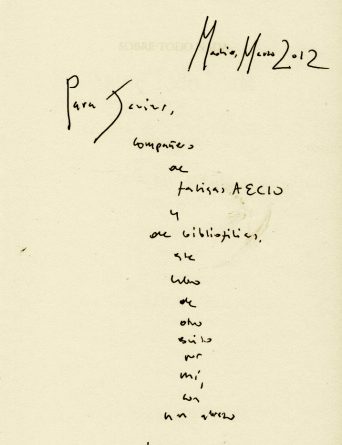 SOBRE TODO
Madrid, Marzo 2012
Para Javier,
compañero
de
fatigas AECID
y
de bibliofilias,
este
libro
de
otro
escrito
por
mí,
con
un abrazo